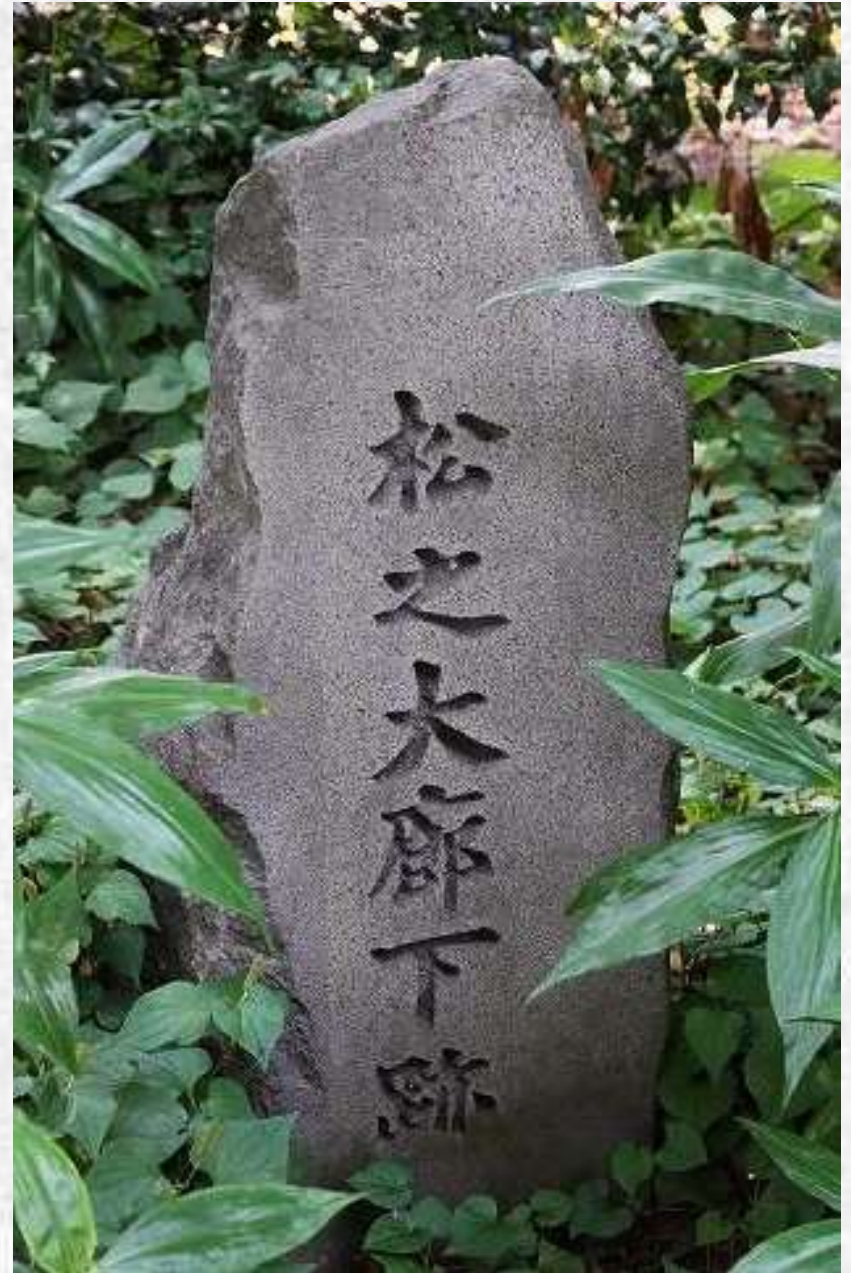 松之大廊下跡